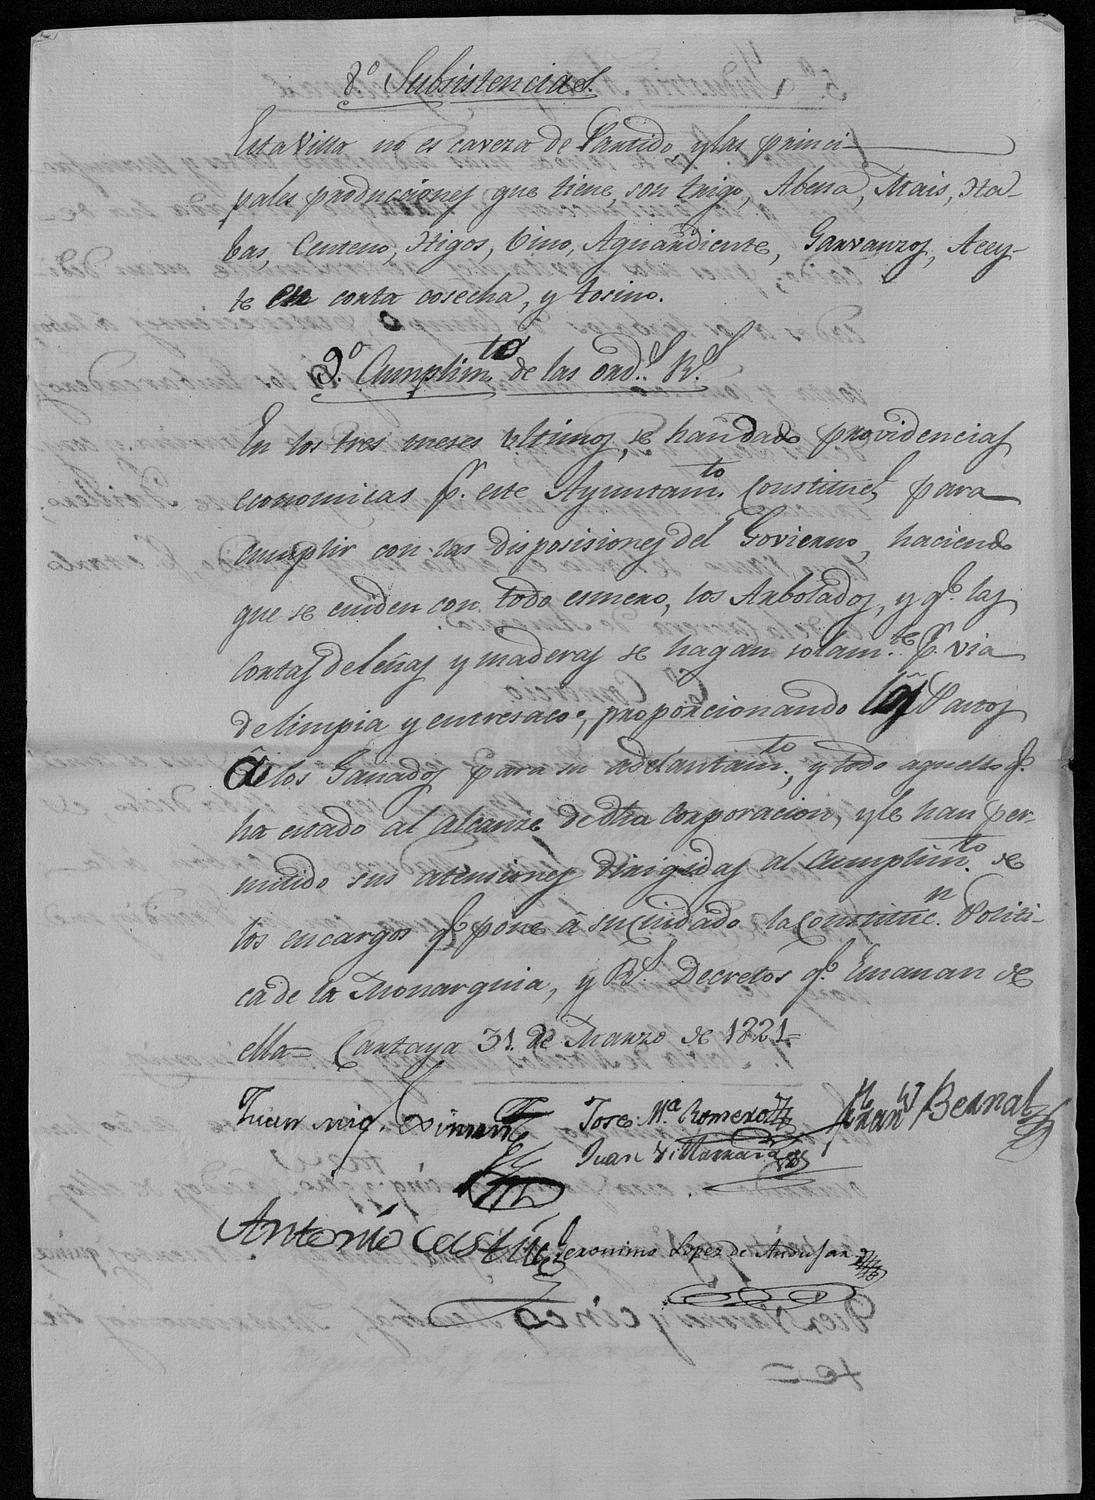 8.º Subsistencias.
Esta Villa no es cavesa de Partido, y las princi-
pales produciones que tiene, son trigo, Abena, Mais, Ha-
bas, Centeno, Higos, Vino, Aguardiente, Garvanzos, Acey-
te en corta cosecha, y tosino.
9.º Cumplim.to de las ord.s R.s
En los tres meses ultimos, se han dado providencias
economicas p.r este Ayuntam.to Constituc.l para
cumplir con las disposisiones del Govierno, haciendo
que se cuiden con todo esmero, los Arbolados, y q.e las
Cortas de leñas y maderas se hagan solam.te p.r via
de limpia y entresaco, proporcionando los Pastos
a los Ganados para su adelantam.to, y todo aquello q.e
ha estado al alcanse de dha corporacion, y le han per-
mitido sus atensiones dirigidas al cumplim.to de
los encargos q.e pone á su cuidado la Constituc.n Politi-
ca de la Monarquia, y R.s Decretos q.e Emanan de
ella = Cartaya 31. de Marzo de 1821 =
Juan
Jose M.a Romero
Fran.co Bernal
Juan Villarrasa
Antonio Castu
Geronimo Lopez de Andujar